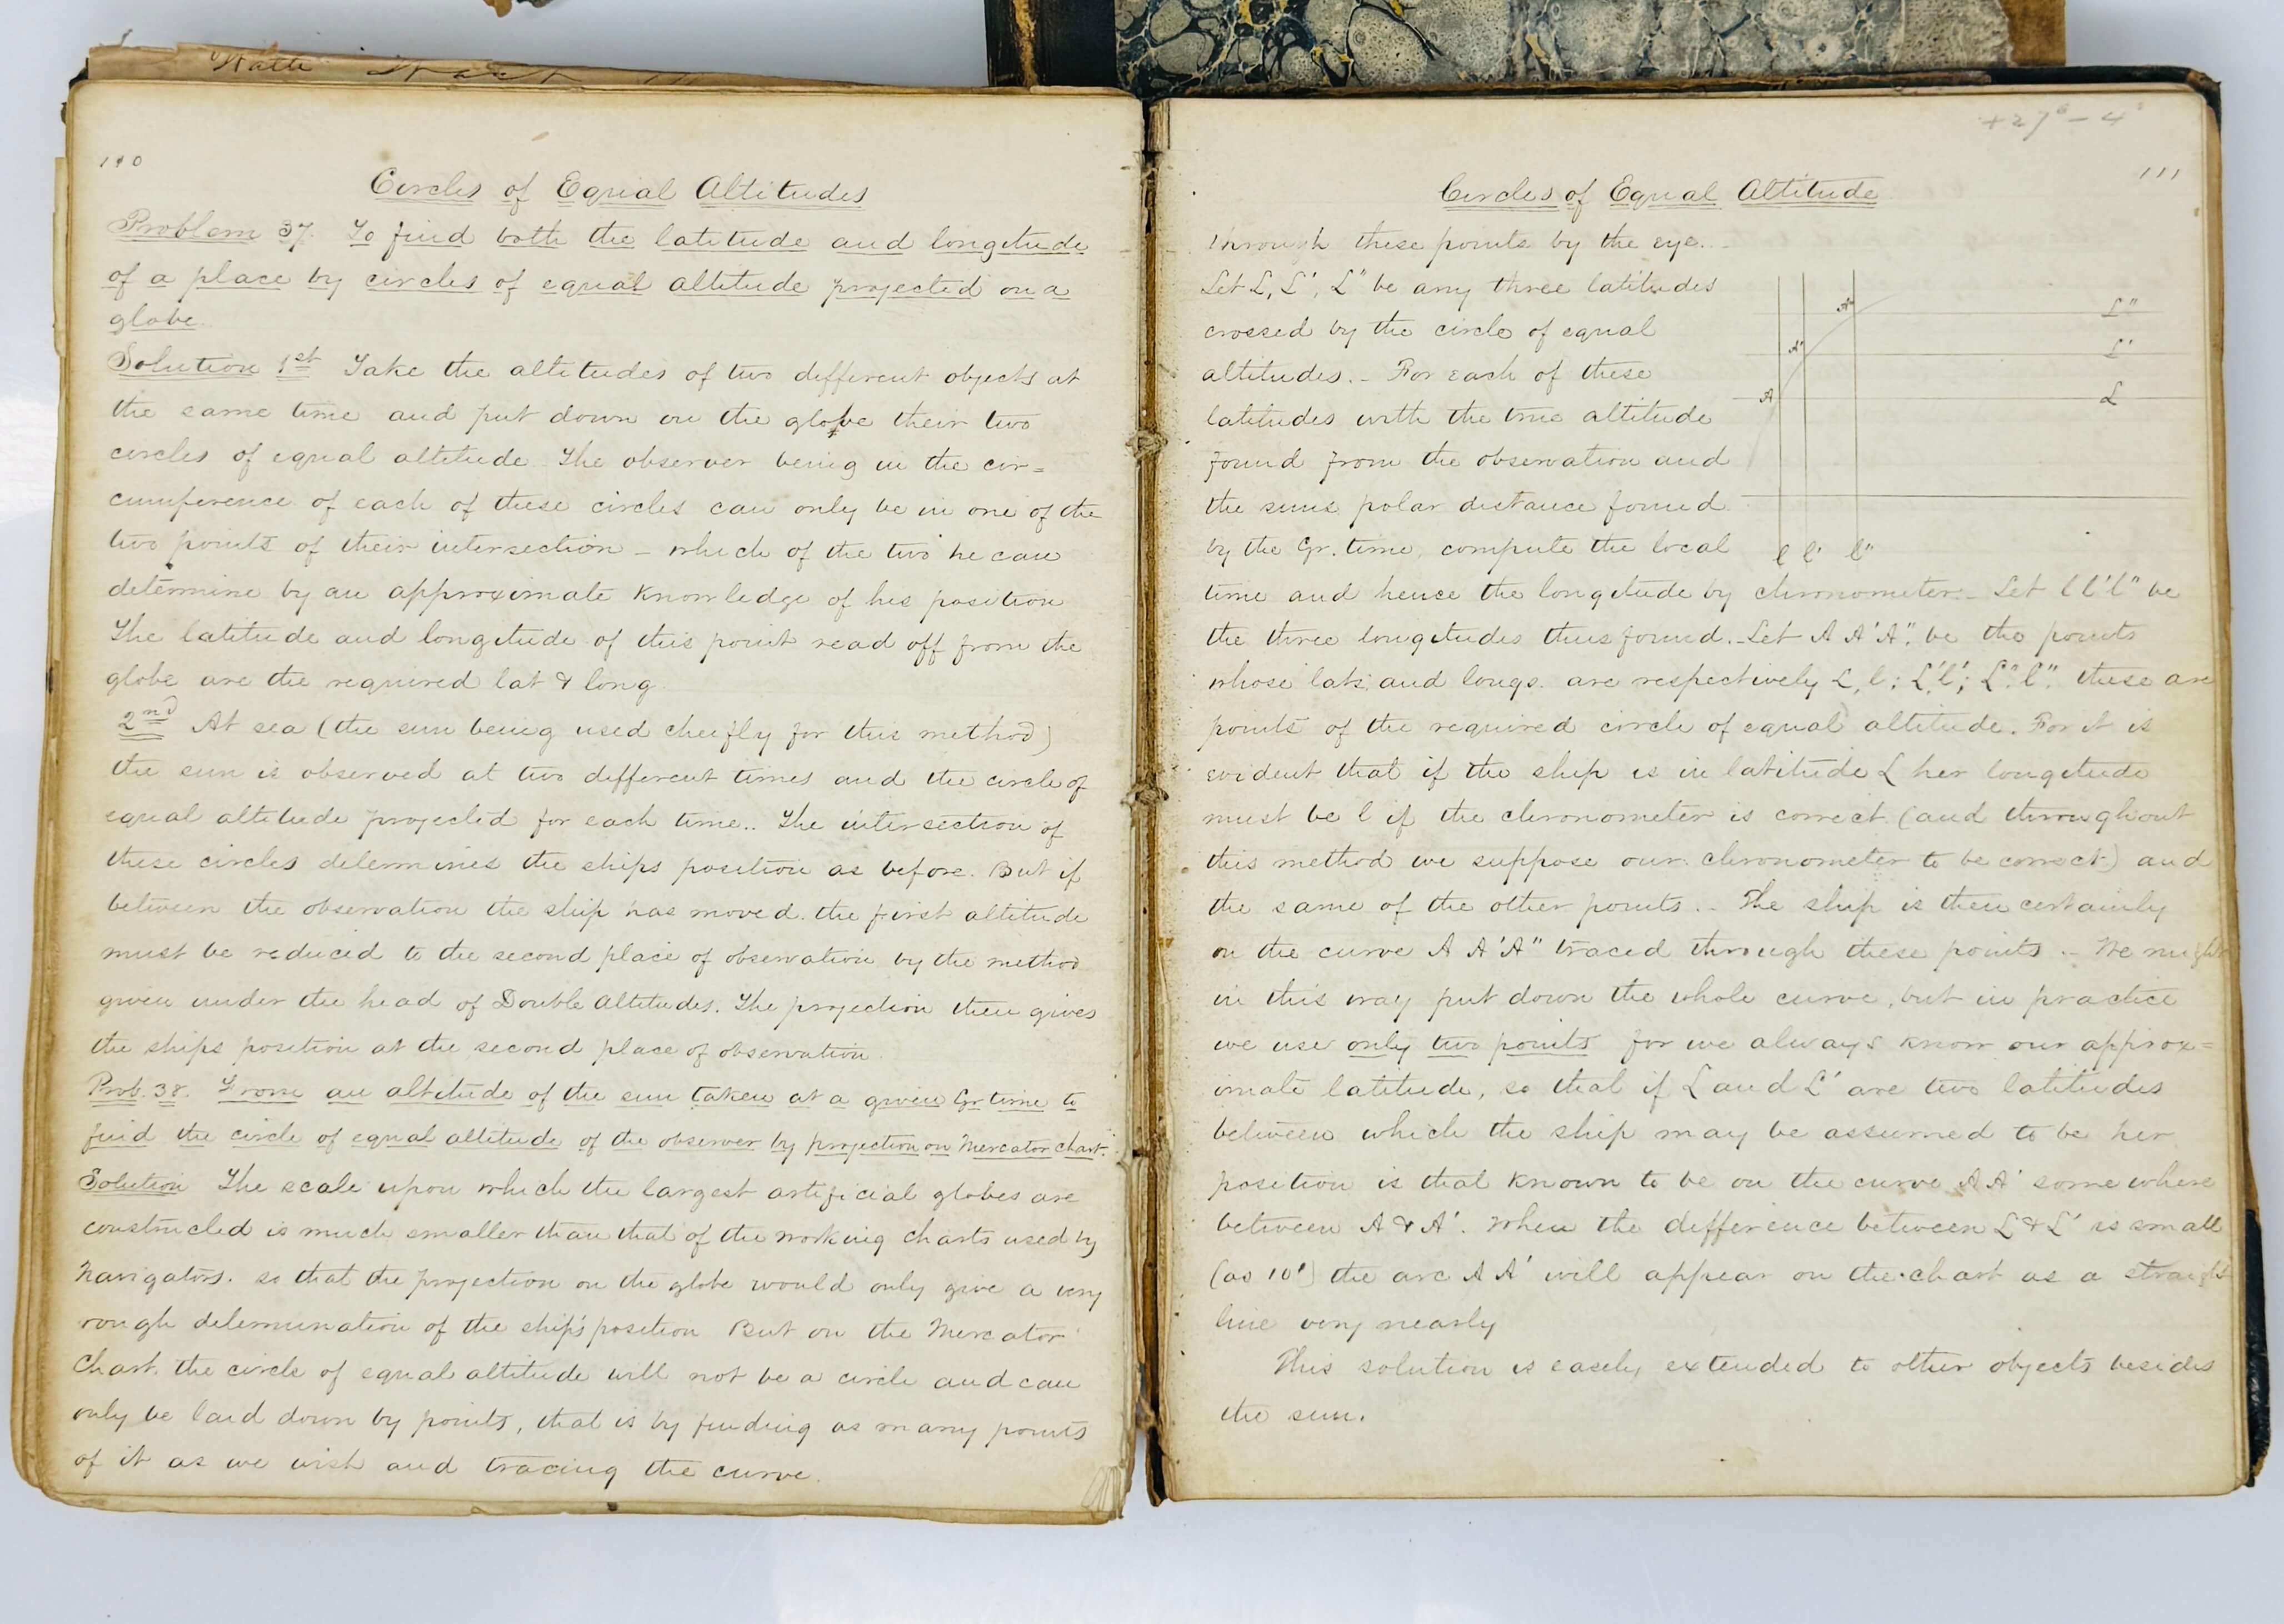 110
Circles of Equal Altitudes
Problem 37. To find both the latitude and longitude
of a place by circles of equal altitude projected on a
globe.
Solution 1st Take the altitudes of two different objects at
the same time and put down on the globe their two
circles of equal altitude. The observer being in the cir=
cumference of each of these circles can only be in one of the
two points of their intersection – which of the two he can
determine by an approximate knowledge of his position
The latitude and longitude of this point read off from the
globe are the required lat & long
2nd At sea (the sun being used chiefly for this method)
the sun is observed at two different times and the circle of
equal altitude projected for each time.. The intersection of
these circles determines the ships position as before. But if
between the observation the ship has moved. the first altitude
must be reduced to the second place of observation by the method
given under the head of Double Altitudes. The projection then gives
the ships position at the second place of observation
Prob. 38. From an altitude of the sun taken at a given Gr time to
find the circle of equal altitude of the observer by projection on Mercator chart.
Solution The scale upon which the largest artificial globes are
constructed is much smaller than that of the working charts used by
Navigators. so that the projection on the globe would only give a very
rough determination of the ship's position But on the Mercator
Chart. the circle of equal altitude will not be a circle and can
only be laid down by points, that is by finding as many points
of it as we wish and tracing the curve.
+27° – 4°
111
Circles of Equal Altitude
through these points by the eye..
Let L, L', L" be any three latitudes
crossed by the circle of equal
altitudes. – For each of these
latitudes with the true altitude
found from the observation and
the suns polar distance found
by the Gr. time, compute the local
A" L"
A' L'
A L
l l' l"
time and hence the longitude by chronometer – Let l l' l" be
the three longitudes thus found. – Let A A' A". be the points
whose lats. and longs. are respectively L, l; L', l'; L", l". these are
points of the required circle of equal altitude. For it is
evident that if the ship is in latitude L her longitude
must be l if the chronometer is correct (and throughout
this method we suppose our chronometer to be correct) and
the same of the other points. – The ship is then certainly
on the curve A A' A" traced through these points. – We might
in this way put down the whole curve, but in practice
we use only two points for we always know our approx=
imate latitude, so that if L and L' are two latitudes
between which the ship may be assumed to be her
position is that known to be on the curve A A' somewhere
between A & A'. When the difference between L & L' is small
(as 10') the arc A A' will appear on the chart as a straight
line very nearly
This solution is easily extended to other objects besides
the sun.